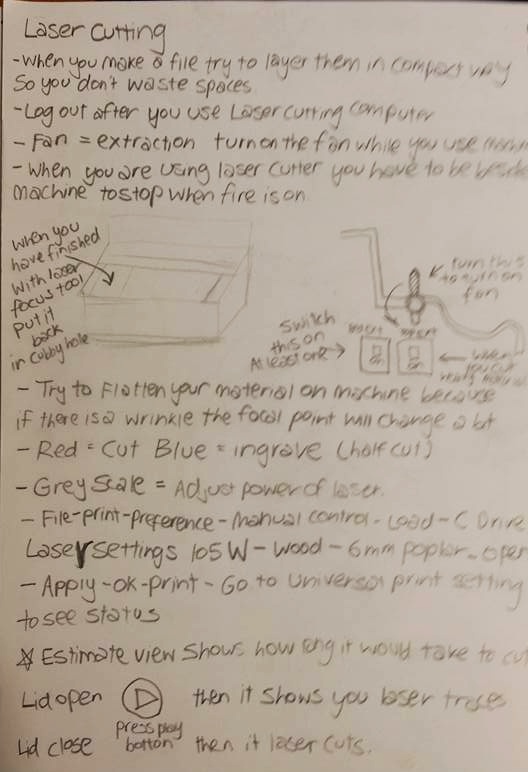 Laser cutting
-When you make a file try to layer them in compact way
So you don't waste spaces
-Log out after you use Laser cutting computer
- Fan = extraction turn on the fan while you use
- When you are using laser cutter you have to be beside
machine to stop when fire is on
When you
have finished
with laser
focus tool
put it
back
in cubby hole
turn this
to turn on
fan
Switch
this on
At least one
on
on
when
you cut
- Try to Flatten your material on machine because
if there is a wrinkle the focal point will change a bit
- Red = Cut Blue = ingrave (half cut)
- Grey Scale = Adjust power of laser.
- File-print-preference-Manual control-Load-C Drive
Laser settings 105W-Wood-6mm poplar-open
- Apply-ok-print-Go to Universal print setting
to see status
☆ Estimate view shows how long it would take to cut
Lid open ▷ then it shows you laser traces
press play
Lid close botton then it laser cuts.